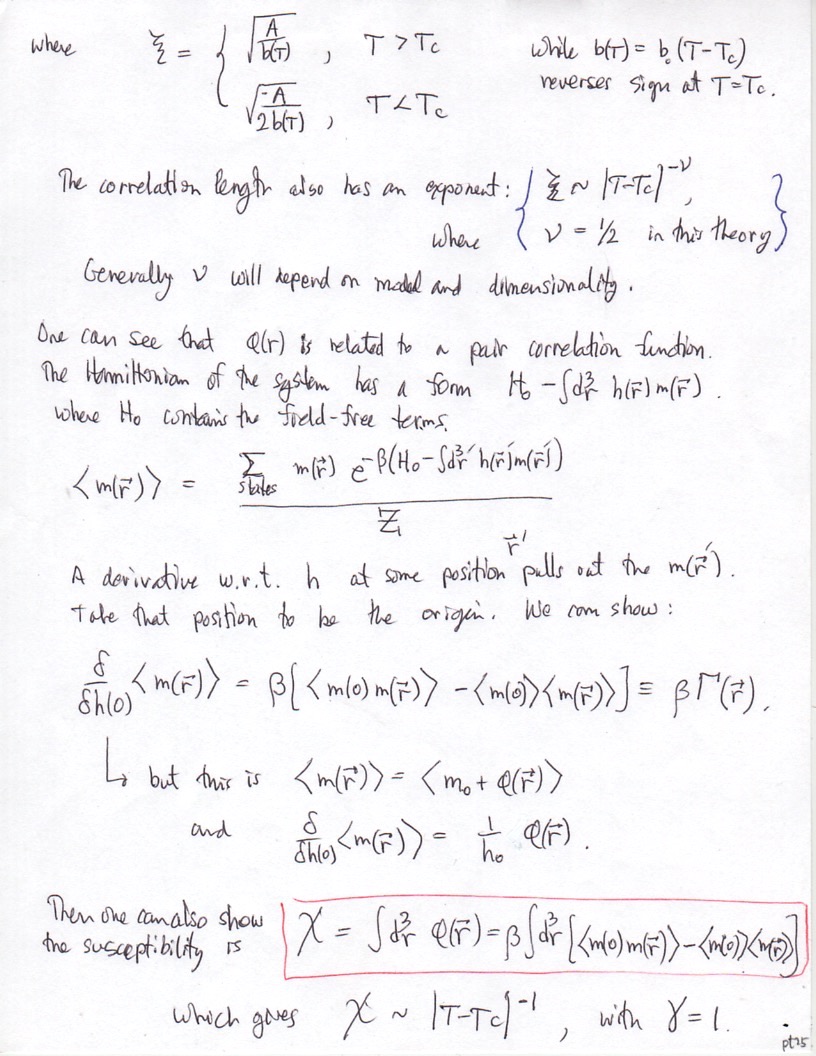 where ξ = { √(A/b(T)) , T > Tc
√(-A/2b(T)) , T < Tc
while b(T) = b₀(T-Tc)
reverses sign at T=Tc.
The correlation length also has an exponent: { ξ ~ |T-Tc|^-ν,
where ν = 1/2 in this theory }
Generally ν will depend on model and dimensionality.
One can see that φ(r) is related to a pair correlation function.
The Hamiltonian of the system has a form H₀ - ∫d³r h(r⃗) m(r⃗).
where H₀ contains the field-free terms.
⟨m(r⃗)⟩ = Σ_states m(r⃗) e^-β(H₀ - ∫d³r' h(r⃗')m(r⃗')) / Z
A derivative w.r.t. h at some position r⃗' pulls out the m(r⃗').
Take that position to be the origin. We can show:
δ/δh(0) ⟨m(r⃗)⟩ = β[⟨m(0)m(r⃗)⟩ - ⟨m(0)⟩⟨m(r⃗)⟩] ≡ βΓ(r⃗),
↳ but this is ⟨m(r⃗)⟩ = ⟨m₀ + φ(r⃗)⟩
and δ/δh(0) ⟨m(r⃗)⟩ = 1/h₀ φ(r⃗).
Then one can also show
the susceptibility is
χ = ∫d³r φ(r⃗) = β∫d³r [⟨m(0)m(r⃗)⟩ - ⟨m(0)⟩⟨m(r⃗)⟩]
which gives χ ~ |T-Tc|^-1, with γ = 1.
pt25